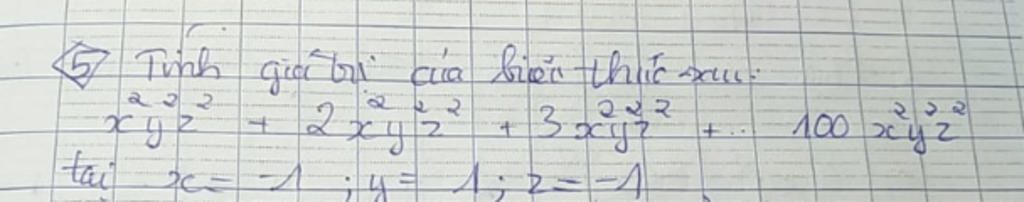 5 Tính giá trị của biểu thức sau:
x²y²z² + 2x²y²z² + 3x²y²z² + .. 100x²y²z²
tại x = -1 ; y = 1 ; z = -1